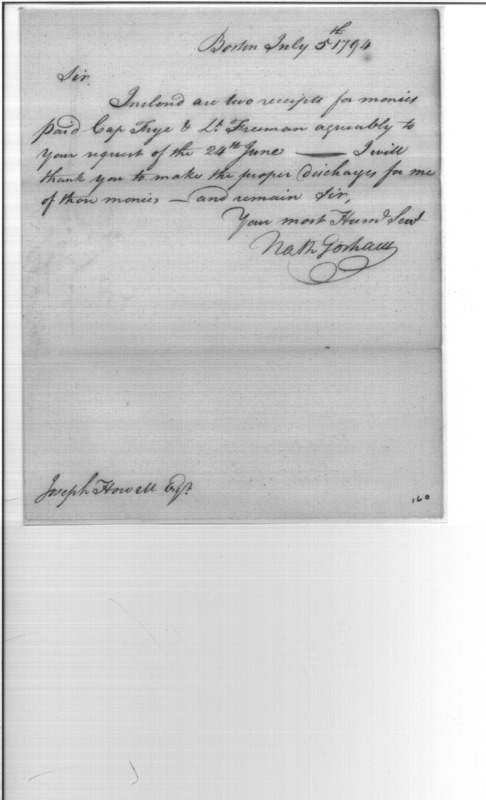 Boston July 5th 1794
Sir.
Inclosd are two receipts for monies
paid Cap Frye & Lt. Freeman agreeably to
your request of the 24th June — I will
thank you to make the proper discharges for me
of those monies — and remain Sir,
Your most Humb. Servt
Nath Gorham
Joseph Howell Esqr.
160